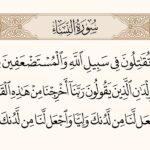 سُورَةُ النِّسَاءِ
تُقَٰتِلُونَ فِي سَبِيلِ ٱللَّهِ وَٱلْمُسْتَضْعَفِينَ
ٱلَّذِينَ يَقُولُونَ رَبَّنَآ أَخْرِجْنَا مِنْ هَٰذِهِ
لَّنَا مِن لَّدُنكَ وَلِيًّا وَٱجْعَل لَّنَا مِن لَّدُنكَ